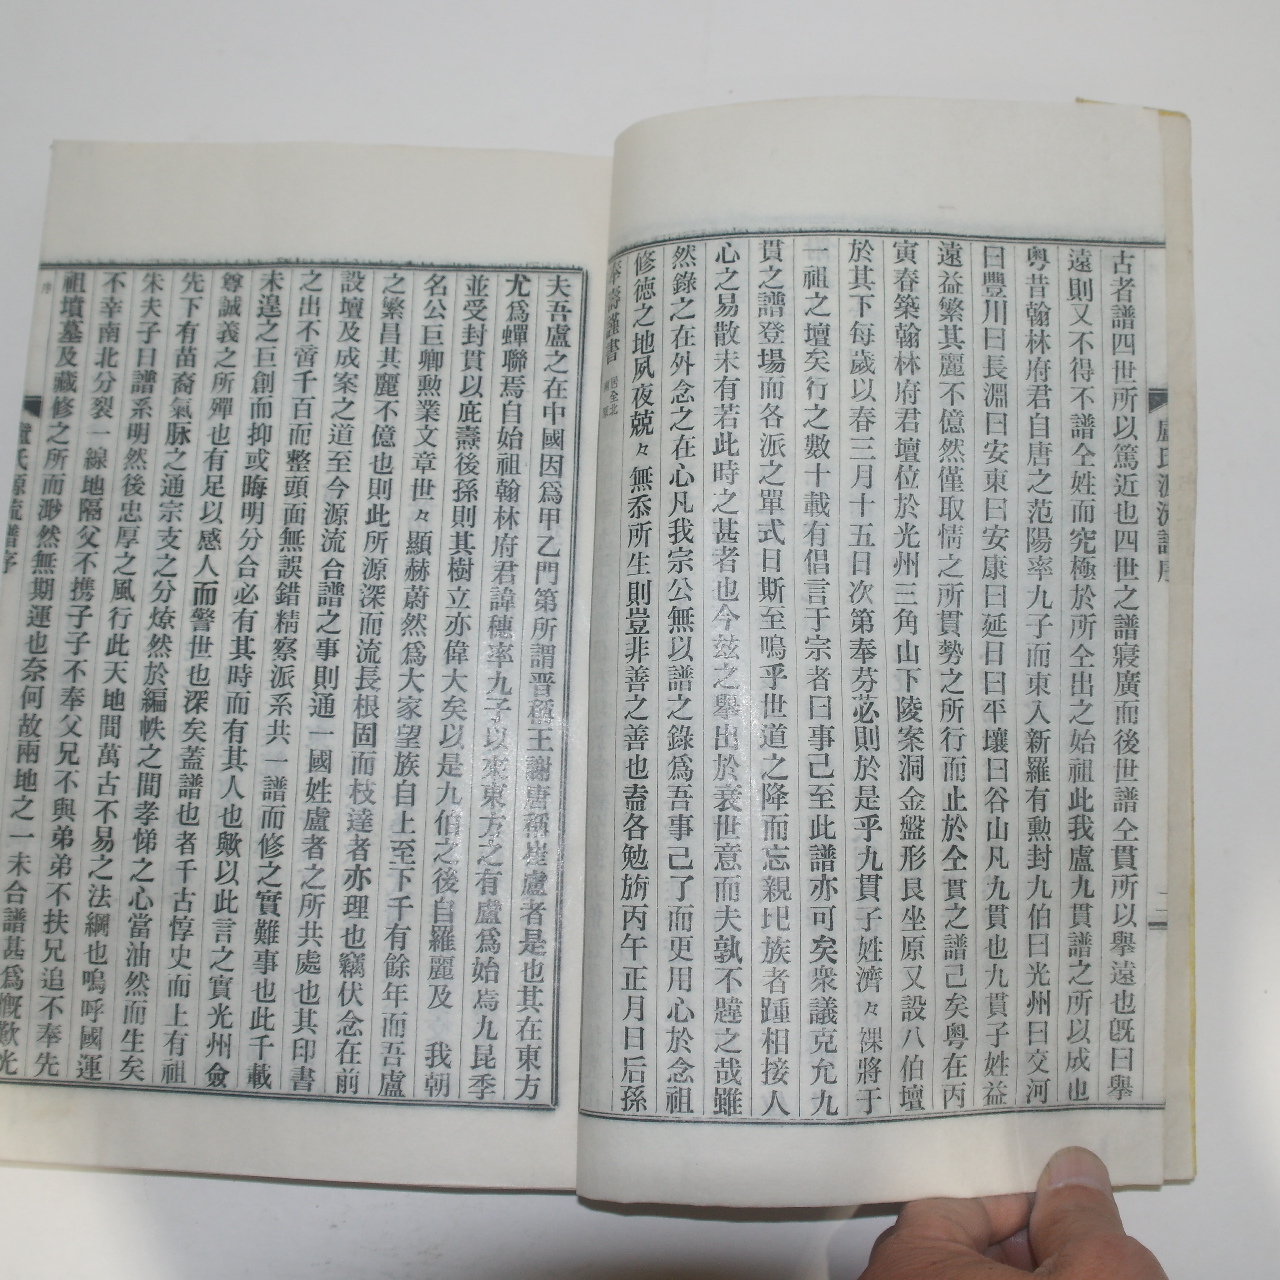 古者譜四世所以篤近也四世之譜寢廣而後世譜仝貫所以擧遠也旣曰擧
遠則又不得不譜仝姓而究極於所仝出之始祖此我盧九貫譜之所以成也
粤昔翰林府君自唐之范陽率九子而東入新羅有勳封九伯曰光州曰交河
曰豐川曰長淵曰安東曰安康曰延日曰平壤曰谷山凡九貫也九貫子姓益
遠益繁其麗不億然僅取情之所貫勢之所行而止於仝貫之譜已矣粤在丙
寅春築翰林府君壇位於光州三角山下陵案洞金盤形艮坐原又設八伯壇
於其下每歲以春三月十五日次第奉芬苾則於是乎九貫子姓濟々祼將于
一祖之壇矣行之數十載有倡言于宗者曰事已至此譜亦可矣衆議克允九
貫之譜登場而各派之單式日斯至嗚乎世道之降而忘親圮族者踵相接人
心之易散未有若此時之甚者也今玆之擧出於衰世意而夫孰不韙之哉雖
然錄之在外念之在心凡我宗公無以譜之錄爲吾事已了而更用心於念祖
修德之地夙夜兢々無忝所生則豈非善之善也盍各勉旃丙午正月日后孫
奉壽謹書 居全北
夫吾盧之在中國因爲甲乙門第所謂晋稱王謝唐稱崔盧者是也其在東方
尤爲蟬聯焉自始祖翰林府君諱穗率九子以來東方之有盧爲始焉九昆季
並受封貫以庇壽後孫則其樹立亦偉大矣以是九伯之後自羅麗及 我朝
名公巨卿勳業文章世々顯赫蔚然爲大家望族自上至下千有餘年而吾盧
之繁昌其麗不億也則此所源深而流長根固而枝達者亦理也竊伏念在前
設壇及成案之道至今源流合譜之事則通一國姓盧者之所共處也其印書
之出不啻千百而整頭面無誤錯精察派系共一譜而修之實難事也此千載
未遑之巨創而抑或晦明分合必有其時而有其人也歟以此言之實光州僉
尊誠義之所殫也有足以感人而警世也深矣蓋譜也者千古惇史而上有祖
先下有苗裔氣脉之通宗支之分燎然於編帙之間孝悌之心當油然而生矣
朱夫子曰譜系明然後忠厚之風行此天地間萬古不易之法綱也嗚呼國運
不幸南北分裂一線地隔父不携子子不奉父兄不與弟弟不扶兄追不奉先
祖墳墓及藏修之所而渺然無期運也奈何故兩地之一未合譜甚爲慨歎光
序
盧氏源流譜序